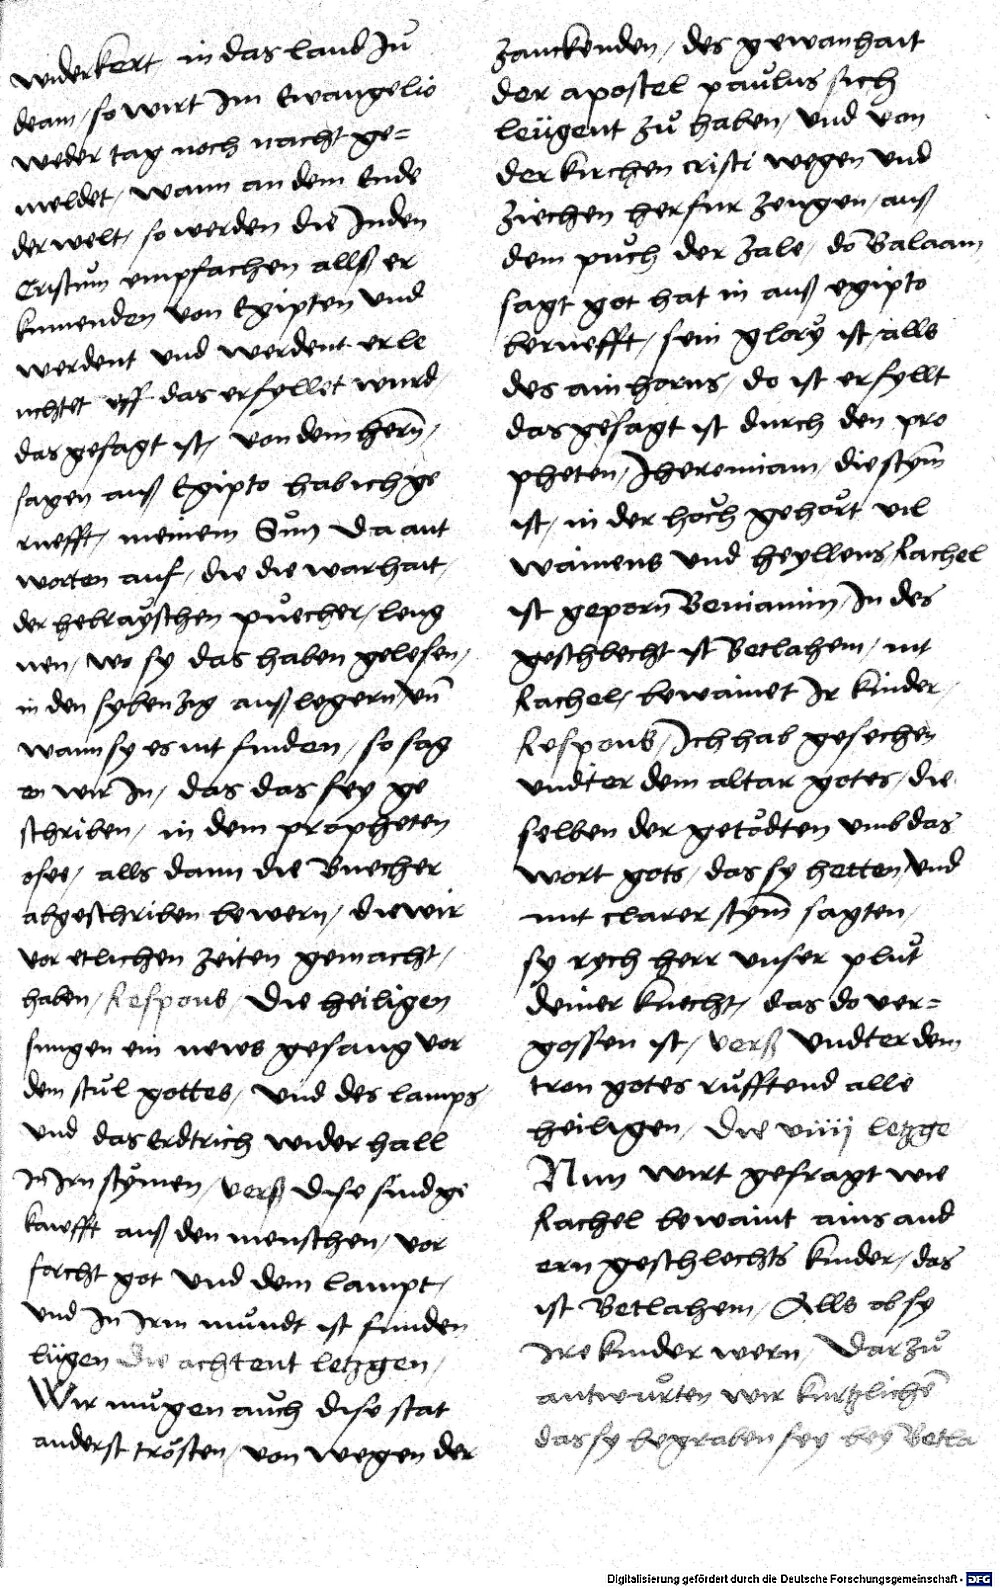 widerkert in das land Ju
deam / so wirt Im Ewangelio
weder tag noch nacht ge=
meldet / wann an dem Ende
der welt / so werden die Juden
Cristum empfachen allß er
kumenden von Egipten vnd
werdent vnd werdent erle
uchtet vff das erfyllet wurd
das gesagt ist / von dem hern̄ /
sagen auß Egipto hab ich ge
ruefft / meinem Sůn Da ant
worten auf / die die warhait /
der hebraÿschen půecher / leug
nen / wo sy das haben gelesen /
in den sybenzig außlegern / vn̄
wann sy es nit finden / so sag
en wir In / das das sey ge
schriben / in dem propheten
osee / alls dann die Buecher
abgeschriben bewern / die wir
vor etlichen zeiten gemacht /
haben / Respons / Die heiligen
sungen ein news gesang vor
dem stůl gottes / vnd des lamps
vnd das Erdtrich widerhall
In Irn stÿmen / verß Dise sind ge
kaufft auß den menschen / vor
forcht got vnd dem lampt /
vnd In Irm můndt ist funden
lügen die achtent letzgen /
Wir můgen aůch dise stat
anderst trösten / von wegen der
zanckenden / des gewanhait
der apostel paůlus sich
leügent zů haben / vnd von
der kirchen cristi wegen vnd
ziechen herfur zeugen / auß
dem půch der zale / do Balaam
sagt got hat in auß egipto
beruefft / sein glorÿ ist / alls
des ainhorns / do ist erfyllt
das gesagt ist durch den pro
pheten / Jheremiam / die stym̄
ist / in der hoch gehört vil
wainens vnd heyllens / Rachel
ist geporn̄ Beniamin / In des
geschlecht ist Betlahem / nit
Rachel / bewainet Ir kinder /
Respons / Ich hab gesechen
vndter dem altar gotes / die
selben der getödten vmb das
wort gots / das sy hetten / vnd
mit clarer stym̄ sagten /
sy rych herr vnser plůt
deiner knecht / das do ver=
gossen ist / verß Vndter dem
tron gotes růfftend alle
heiligen / Die viiij letzge
Nun wirt gefragt wie
Rachel bewaint ains and
ern geschlechts kinder / das
ist Betlahem / Alls ob sy
Ire kinder wern / Darzů
antwůrten wir kurtzlichē
das sy begraben sey bey Betla
Digitalisierung gefördert durch die Deutsche Forschungsgemeinschaft - DFG